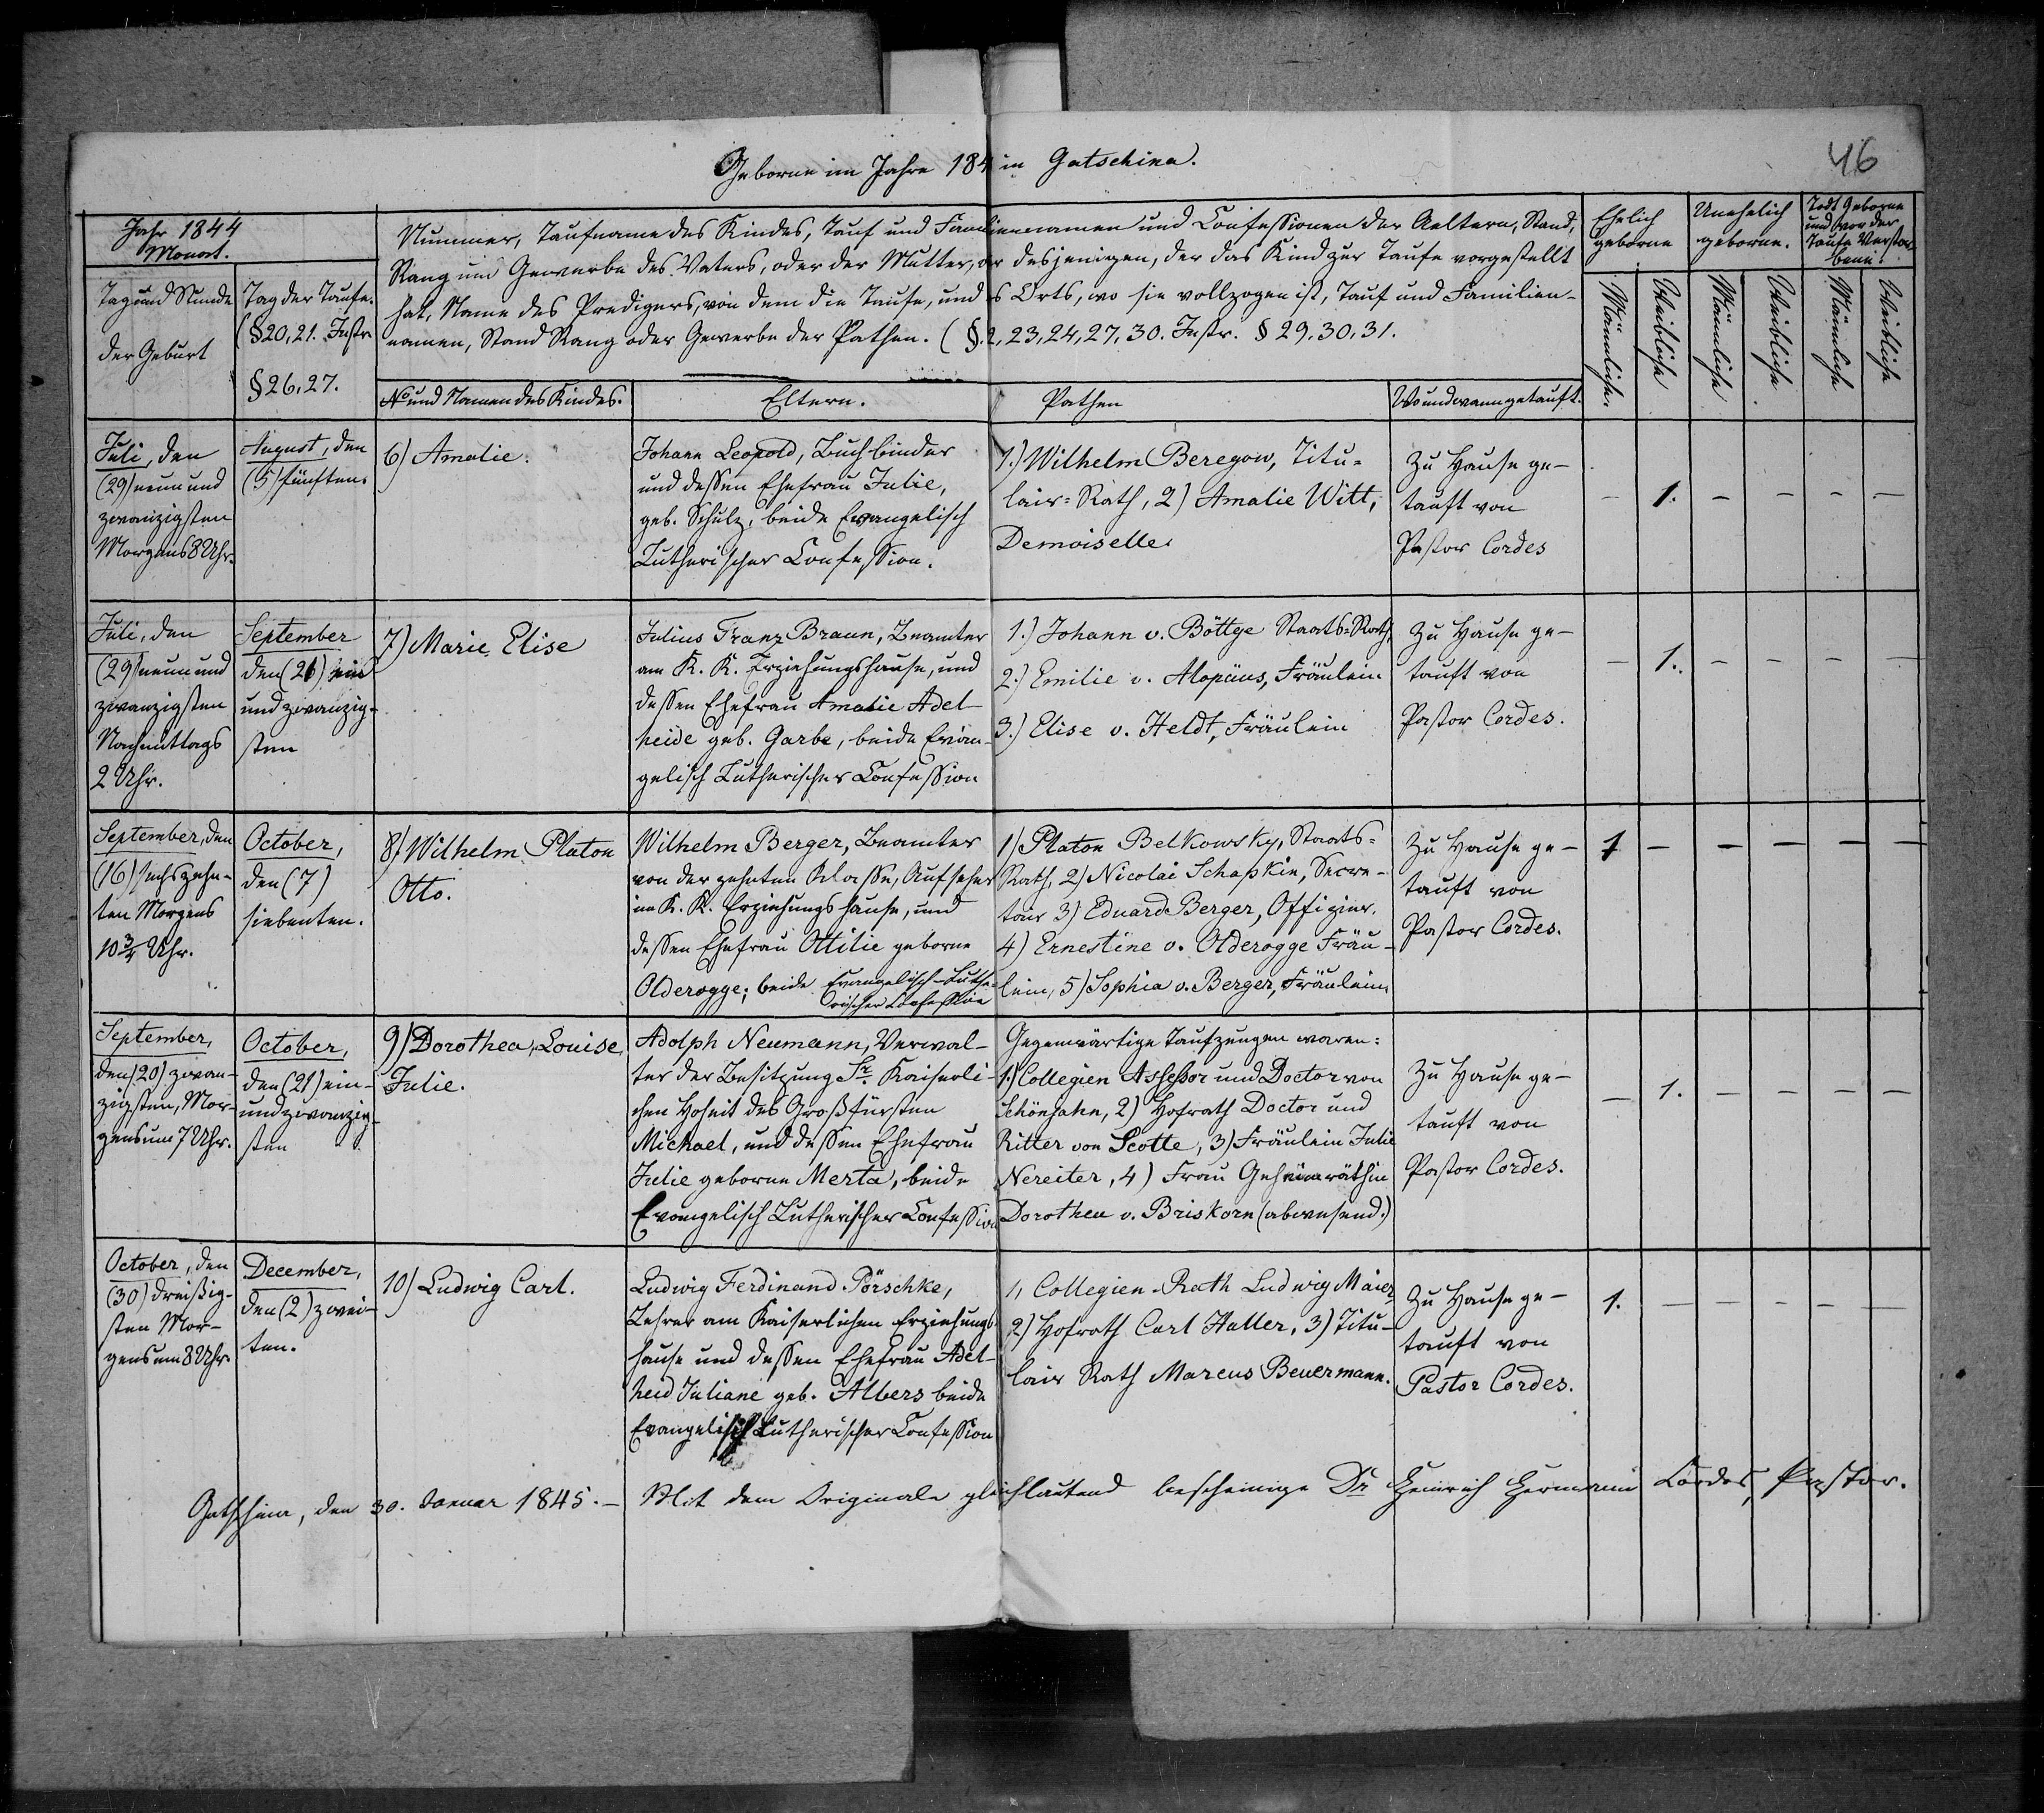 46
Geborne im Jahre 184 in Gatschina.
Jahr 1844
Monat.
Tag und Stunde
der Geburt
Tag der Taufe.
(§20,21. Instr.
§26,27.
Nummer, Taufname des Kindes, Tauf und Familiennamen und Confessionen der Aeltern, Stand,
Rang und Gewerbe des Vaters, oder der Mutter, oder desjenigen, der das Kind zur Taufe vorgestellt
hat, Name des Predigers, von dem die Taufe, und s Orts, wo sie vollzogen ist, Tauf und Familien-
namen, Stand Rang oder Gewerbe der Pathen. (§.2, 23, 24, 27, 30. Instr. §29, 30, 31.
No und Namen des Kindes.
Eltern.
Pathen
Wo und wann getauft.
Ehelich
geborne
Unehelich
geborne.
Todt Geborne
und vor der
Taufe Verstor-
bene.
Männliche.
Weibliche
Männliche
Weibliche
Männliche
Weibliche
Juli, den
(29) neun und
zwanzigsten
Morgens 8 Uhr.
August, den
(5) fünften.
6) Amalie.
Johann Leopold, Buchbinder
und dessen Ehefrau Julie,
geb. Schulz, beide Evangelisch
Lutherischer Confession.
1.) Wilhelm Beregow, Titu-
lair-Rath, 2) Amalie Witt,
Demoiselle.
Zu Hause ge-
tauft von
Pastor Cordes
– 1. – – – –
Juli, den
(29) neun und
zwanzigsten
Nachmittags
2 Uhr.
September
den (21) ein
und zwanzig-
sten
7) Marie Elise
Julius Franz Braun, Beamter
am K. K. Erziehungshause, und
dessen Ehefrau Amalie Adel-
heide geb. Garbe, beide Evan-
gelisch Lutherischer Confession
1.) Johann v. Böttge Staats-Rath,
2.) Emilie v. Alopäus, Fräulein
3.) Elise v. Heldt, Fräulein
Zu Hause ge-
tauft von
Pastor Cordes.
– 1. – – – –
September, den
(16) sechszehn-
ten Morgens
10 3/4 Uhr.
October,
den (7)
siebenten.
8) Wilhelm Platon
Otto.
Wilhelm Berger, Beamter
von der zehnten Classe, Aufseher
im K. K. Erziehungshause, und
dessen Ehefrau Ottilie geborne
Olderogge; beide Evangelisch-Luthe-
rischer Confession
1) Platon Belkowsky, Staats-
Rath, 2) Nicolai Schapkin, Secre-
tair 3) Eduard Berger, Offizier.
4) Ernestine v. Olderogge Fräu-
lein, 5) Sophia v. Berger, Fräulein
Zu Hause ge-
tauft von
Pastor Cordes.
1 – – – – –
September,
den (20) zwan-
zigsten, Mor-
gens um 7 Uhr.
October,
den (21) ein-
und zwanzig-
sten
9) Dorothea, Louise,
Julie.
Adolph Neumann, Verwal-
ter der Besitzung Sr. Kaiserli-
chen Hoheit des Großfürsten
Michael, und dessen Ehefrau
Julie geborne Merta, beide
Evangelisch Lutherischer Confession
Gegenwärtige Taufzeugen waren:
1.) Collegien Assessor und Doctor von
Schönjahn, 2) Hofrath Doctor und
Ritter von Scotte, 3) Fräulein Julie
Nereiter, 4) Frau Geheimräthin
Dorothea v. Briskorn (abwesend.)
Zu Hause ge-
tauft von
Pastor Cordes.
– 1. – – – –
October, den
(30) dreißig-
sten Mor-
gens um 8 Uhr.
December,
den (2) zwei-
ten.
10) Ludwig Carl.
Ludwig Ferdinand Pörschke,
Lehrer am Kaiserlichen Erziehungs-
hause und dessen Ehefrau Adel-
heid Juliane geb. Albers beide
Evangelisch Lutherischer Confession
1, Collegien-Rath Ludwig Maier,
2) Hofrath Carl Haller, 3) Titu-
lair Rath Marcus Beuermann.
Zu Hause ge-
tauft von
Pastor Cordes.
1. – – – – –
Gatschina, den 30. Januar 1845. – Mit dem Originale gleichlautend bescheinige Dr Heinrich Hermann Cordes, Pastor.